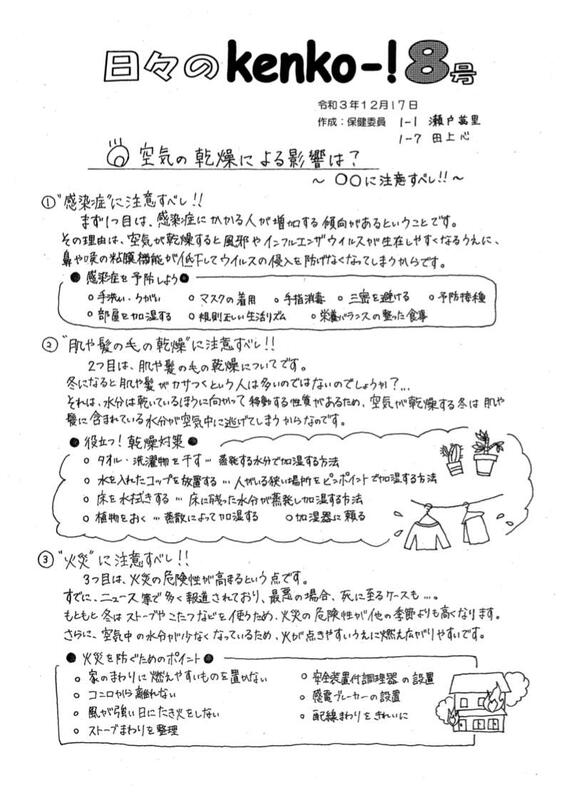 日々のkenko-!8号
令和3年12月17日
作成:保健委員 1-1 瀬戸菜里
1-7 田上心
空気の乾燥による影響は?
~ ○○に注意すべし!! ~
① "感染症"に注意すべし!!
まず1つ目は、感染症にかかる人が増加する傾向があるということです。
その理由は、空気が乾燥すると風邪やインフルエンザウイルスが生存しやすくなるうえに、
鼻や喉の粘膜機能が低下してウイルスの侵入を防げなくなってしまうからです。
● 感染症を予防しよう ●
○ 手洗い・うがい ○ マスクの着用 ○ 手指消毒 ○ 三密を避ける ○ 予防接種
○ 部屋を加湿する ○ 規則正しい生活リズム ○ 栄養バランスの整った食事
② "肌や髪の毛の乾燥"に注意すべし!!
2つ目は、肌や髪の毛の乾燥についてです。
冬になると肌や髪がカサつくという人は多いのではないのでしょうか?...
それは、水分は乾いているほうに向かって移動する性質があるため、空気が乾燥する冬は肌や
髪に含まれている水分が空気中に逃げてしまうからなのです。
● 役立つ!乾燥対策 ●
○ タオル・洗濯物を干す … 蒸発する水分で加湿する方法
○ 水を入れたコップを放置する … 人がいる狭い場所をピンポイントで加湿する方法
○ 床を水拭きする … 床に残った水分が蒸発し加湿する方法
○ 植物をおく … 蒸散によって加湿する ○ 加湿器に頼る
③ "火災"に注意すべし!!
3つ目は、火災の危険性が高まるという点です。
すでに、ニュース等で多く報道されており、最悪の場合、死に至るケースも...。
もともと冬はストーブやこたつなどを使うため、火災の危険性が他の季節よりも高くなります。
さらに、空気中の水分が少なくなっているため、火が点きやすいうえに燃え広がりやすいです。
● 火災を防ぐためのポイント ●
○ 家のまわりに燃えやすいものを置かない ○ 安全装置付調理器の設置
○ コンロから離れない ○ 感電ブレーカーの設置
○ 風が強い日にたき火をしない ○ 配線まわりをきれいに
○ ストーブまわりを整理